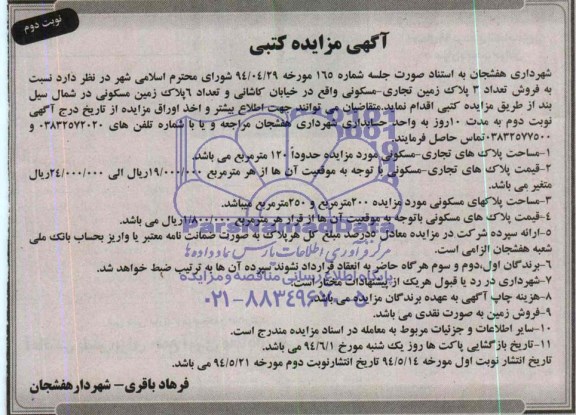 نوبت دوم
آگهی مزایده کتبی
شهرداری هفشجان به استناد صورت جلسه شماره ۱۶۵ مورخه ۹۴/۰۴/۲۹ شورای محترم اسلامی شهر در نظر دارد نسبت
به فروش تعداد ۳ پلاک زمین تجاری-مسکونی واقع در خیابان کاشانی و تعداد ۶پلاک زمین مسکونی در شمال سیل
بند از طریق مزایده کتبی اقدام نماید.متقاضیان می توانند جهت اطلاع بیشتر و اخذ اوراق مزایده از تاریخ درج آگهی
نوبت دوم به مدت ۱۰روز به واحد حسابداری شهرداری هفشجان مراجعه و یا با شماره تلفن های ۰۳۸۳۲۵۷۲۰۲۰ و
۰۳۸۳۲۵۷۷۵۰۰تماس حاصل فرمایند.
۱-مساحت پلاک های تجاری-مسکونی مورد مزایده حدوداً ۱۲۰ مترمربع می باشد.
۲-قیمت پلاک های تجاری-مسکونی با توجه به موقعیت آن ها از هر مترمربع ۱۹/۰۰۰/۰۰۰ریال الی ۲۴/۰۰۰/۰۰۰ریال
متغیر می باشد.
۳-مساحت پلاکهای مسکونی مورد مزایده ۲۰۰مترمربع و ۲۵۰مترمربع میباشد.
۴-قیمت پلاک های مسکونی باتوجه به موقعیت آن ها از قرار هر مترمربع ۱/۸۰۰/۰۰۰ریال می باشد.
۵-ارائه سپرده شرکت در مزایده معادل ۵درصد مبلغ کل هرپلاک به صورت ضمانت نامه معتبر یا واریز بحساب بانک ملی
شعبه هفشجان الزامی است.
۶-برندگان اول،دوم و سوم هرگاه حاضر به انعقاد قرارداد نشوند سپرده آن ها به ترتیب ضبط خواهد شد.
۷-شهرداری در رد یا قبول هریک از پیشنهادات مختار است.
۸-هزینه چاپ آگهی به عهده برندگان مزایده می باشد.
۹-فروش زمین به صورت نقدی می باشد.
۱۰-سایر اطلاعات و جزئیات مربوط به معامله در اسناد مزایده مندرج است.
۱۱-تاریخ بازگشایی پاکت ها روز یک شنبه مورخ ۹۴/۶/۱ می باشد.
تاریخ انتشار نوبت اول مورخه ۹۴/۵/۱۴ تاریخ انتشارنوبت دوم مورخه ۹۴/۵/۲۱ می باشد.
فرهاد باقری– شهردارهفشجان
ParsNamadData
مرکز فرآوری اطلاعات پارس نماد داده ها
پایگاه اطلاع رسانی مناقصه و مزایده
۰۲۱-۸۸۳۴۹۶۷۰-۵